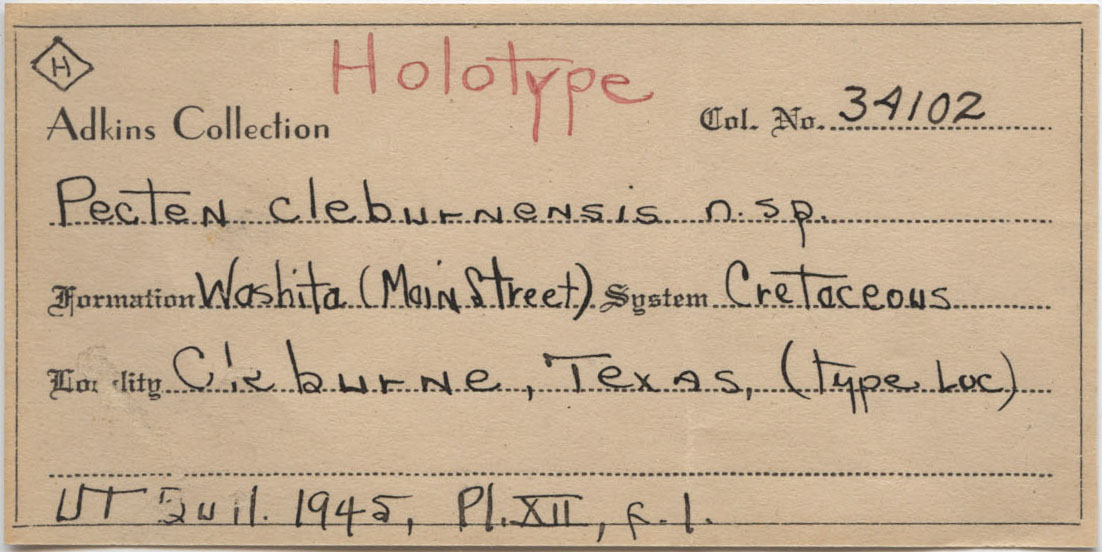 H
Holotype
Adkins Collection
Col. No. 34102
Pecten cleburnensis n. sp.
Formation Washita (Main Street) System Cretaceous
Locality Cleburne, Texas, (type Loc)
UT Bull. 1945, Pl. XII, f. 1.